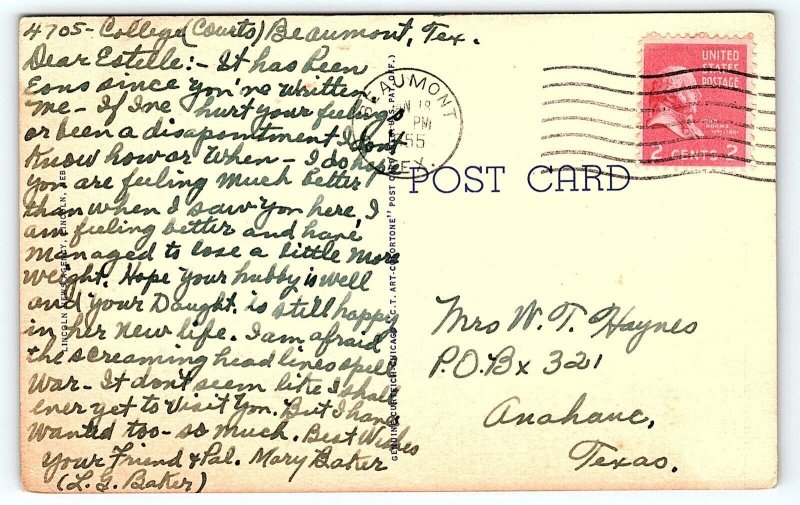 4705- College (Courts) Beaumont, Tex.
Dear Estelle:- It has been
Eons since you've written
me- If I've hurt your feelings
or been a disapointment I don't
know how or when- I do hope
you are feeling much better
than when I saw you here, I
am feeling better and have
managed to lose a little more
weight. Hope your hubby is well
and your Daught. is still happy
in her new life. I am afraid
the screaming head lines spell
War- It don't seem like I shall
ever get to visit you. But I have
wanted too- so much. Best Wishes
your Friend & Pal. Mary Baker
(L. G. Baker)
BEAUMONT
18
PM
55
TEX.
UNITED
STATES
POSTAGE
JOHN
ADAMS
2 CENTS 2
POST CARD
Mrs W. T. Haynes
P.O. Bx 321
Anahuac,
Texas.
LINCOLN NEWS AGENCY, LINCOLN, NEB.
GENUINE CURTEICH-CHICAGO "C.T. ART-COLORTONE" POST CARD (REG. U.S. PAT. OFF.)